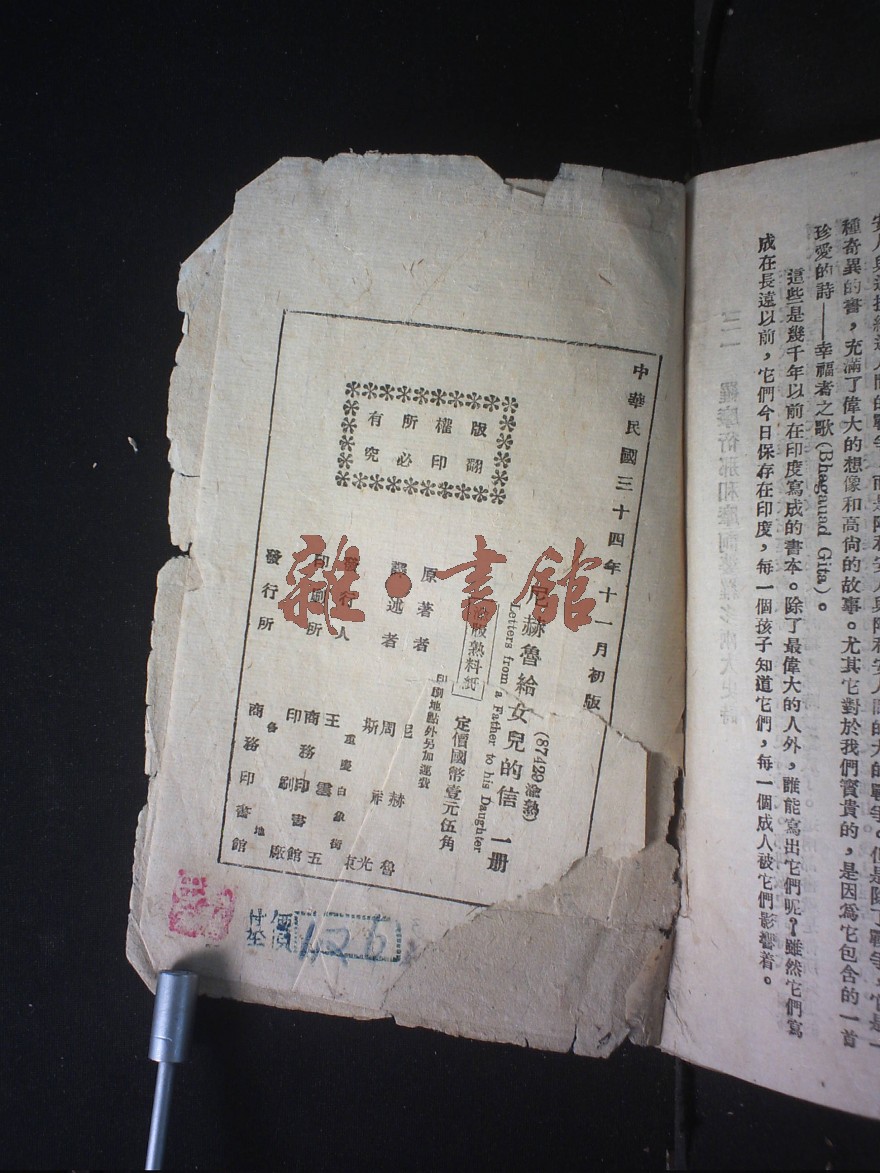 種奇異的書，充滿了偉大的想像和高尙的故事。尤其它對於我們寶貴的，是因爲它包含的一首
珍愛的詩——幸福者之歌(Bhagauad Gita)。
這些是幾千年以前在印度寫成的書本。除了最偉大的人外，誰能寫出它們呢？雖然它們寫
成在長遠以前，它們今日保存在印度，每一個孩子知道它們，每一個成人被它們影響着。
中華民國三十四年十一月初版
(87429渝熟)
尼赫魯給女兒的信 一册
Letters from a Father to his Daughter
版熟料紙
定價國幣壹元伍角
印刷地點外另加運費
版權所有
翻印必究
原著者 尼赫魯
譯述者 周 光
斯東
發行人 王雲五
重慶白象街
印刷所 商務印書館
印刷廠
發行所 各地
商務印書館
雜·書館